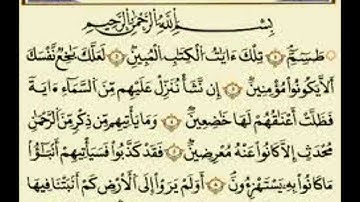 بِسْمِ اللَّهِ الرَّحْمَٰنِ الرَّحِيمِ
طسٓمٓ ۝١ تِلْكَ ءَايَٰتُ ٱلْكِتَٰبِ ٱلْمُبِينِ ۝٢ لَعَلَّكَ بَٰخِعٌ نَّفْسَكَ
أَلَّا يَكُونُوا۟ مُؤْمِنِينَ ۝٣ إِن نَّشَأْ نُنَزِّلْ عَلَيْهِم مِّنَ ٱلسَّمَآءِ ءَايَةً
فَظَلَّتْ أَعْنَٰقُهُمْ لَهَا خَٰضِعِينَ ۝٤ وَمَا يَأْتِيهِم مِّن ذِكْرٍ مِّنَ ٱلرَّحْمَٰنِ
مُحْدَثٍ إِلَّا كَانُوا۟ عَنْهُ مُعْرِضِينَ ۝٥ فَقَدْ كَذَّبُوا۟ فَسَيَأْتِيهِمْ أَنۢبَٰٓؤُا۟
مَا كَانُوا۟ بِهِۦ يَسْتَهْزِءُونَ ۝٦ أَوَلَمْ يَرَوْا۟ إِلَى ٱلْأَرْضِ كَمْ أَنۢبَتْنَا فِيهَا